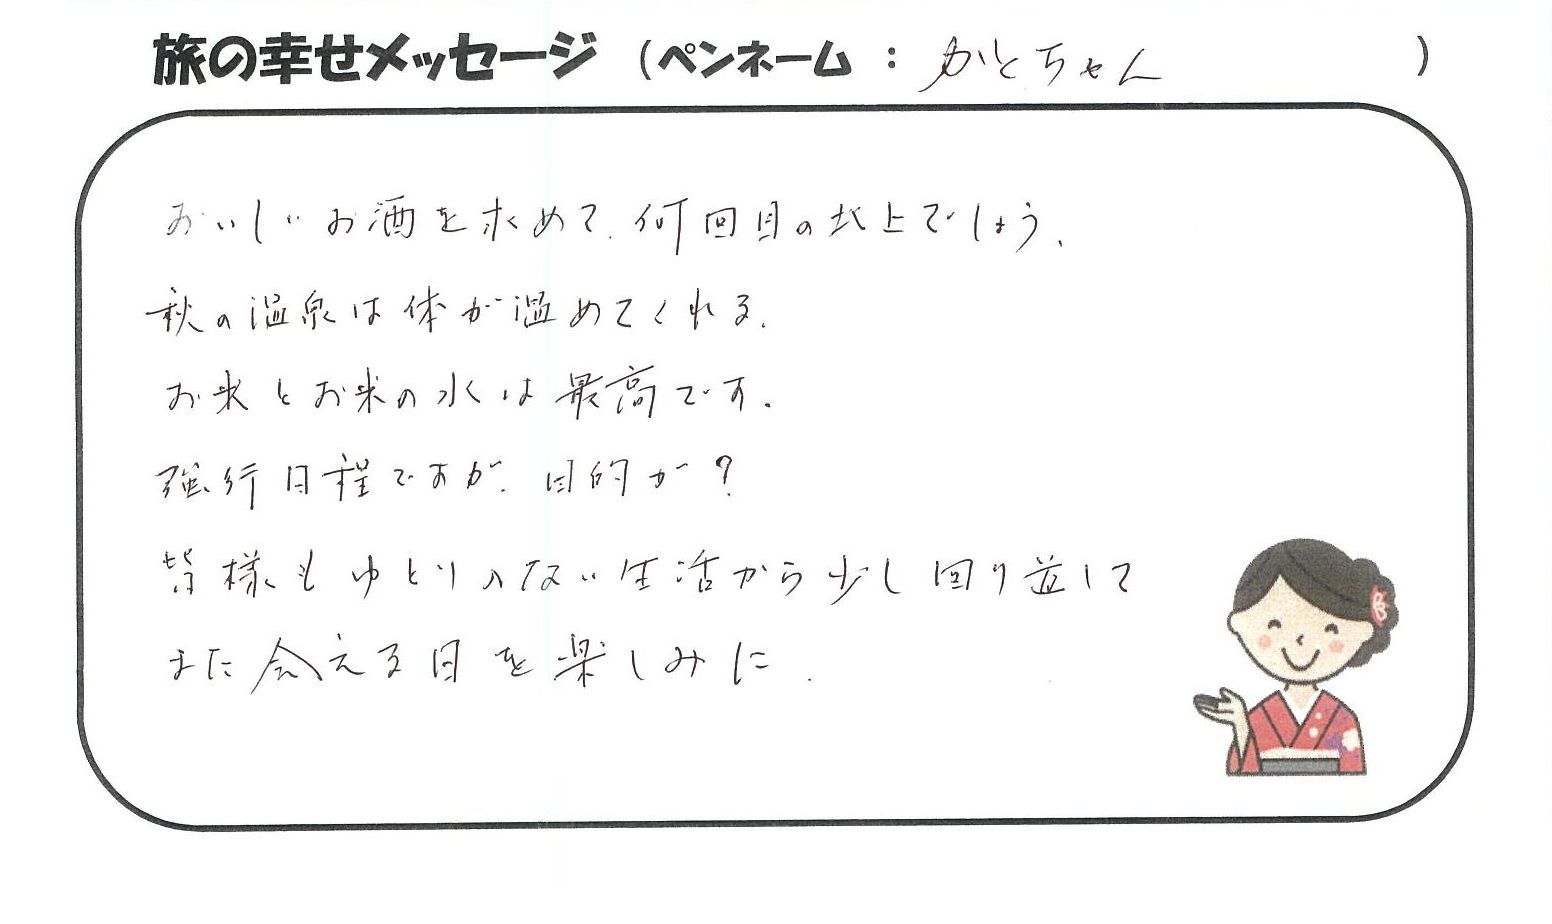 旅の幸せメッセージ (ペンネーム : かとちゃん )
おいしいお酒を求めて、何回目の北上でしょう、
秋の温泉は体が温めてくれる.
お米とお米の水は最高です.
強行日程ですが、目的が?
皆様もゆとりのない生活から少し回り道して
また会える日を楽しみに.